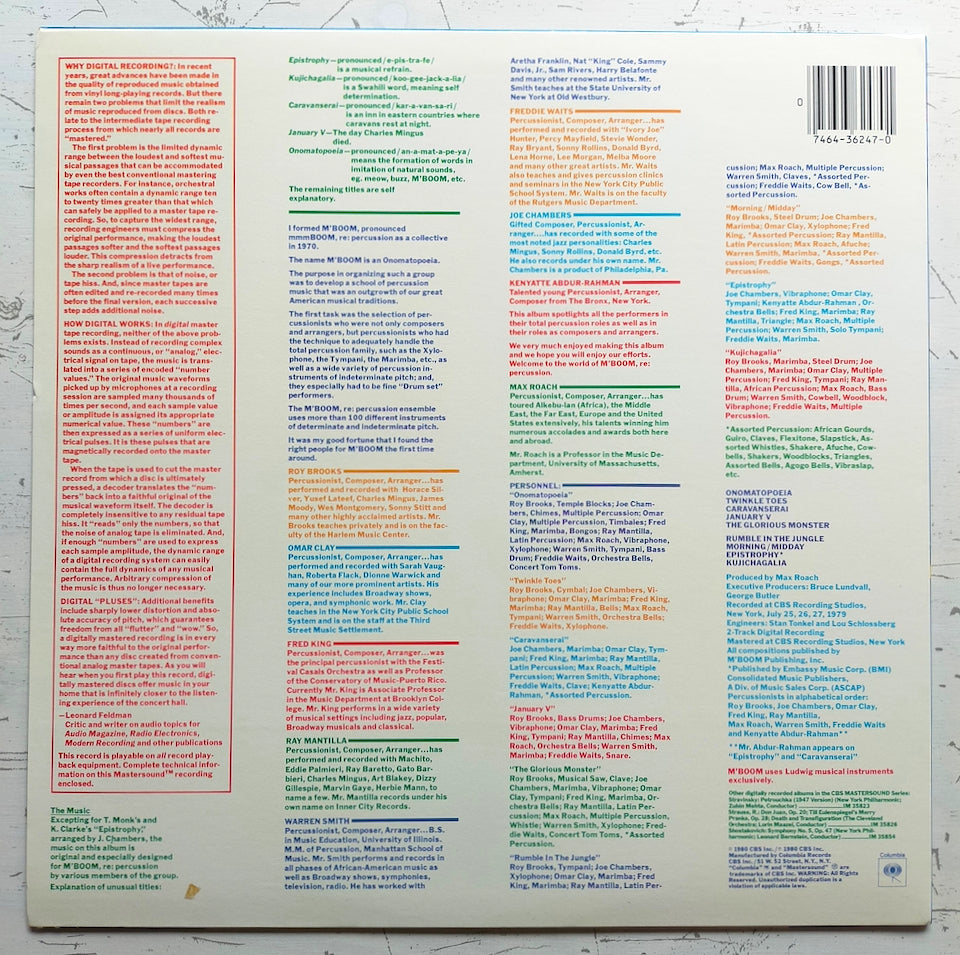 WHY DIGITAL RECORDING?: In recent
years, great advances have been made in
the quality of reproduced music obtained
from vinyl long-playing records. But there
remain two problems that limit the realism
of music reproduced from discs. Both re-
late to the intermediate tape recording
process from which nearly all records are
"mastered."
The first problem is the limited dynamic
range between the loudest and softest mu-
sical passages that can be accommodated
by even the best conventional mastering
tape recorders. For instance, orchestral
works often contain a dynamic range ten
to twenty times greater than that which
can safely be applied to a master tape re-
cording. So, to capture the widest range,
recording engineers must compress the
original performance, making the loudest
passages softer and the softest passages
louder. This compression detracts from
the sharp realism of a live performance.
The second problem is that of noise, or
tape hiss. And, since master tapes are
often edited and re-recorded many times
before the final version, each successive
step adds additional noise.
HOW DIGITAL WORKS: In digital master
tape recording, neither of the above prob-
lems exists. Instead of recording complex
sounds as a continuous, or "analog," elec-
trical signal on tape, the music is trans-
lated into a series of encoded "number
values." The original music waveforms
picked up by microphones at a recording
session are sampled many thousands of
times per second, and each sample value
or amplitude is assigned its appropriate
numerical value. These "numbers" are
then expressed as a series of uniform elec-
trical pulses. It is these pulses that are
magnetically recorded onto the master
tape.
When the tape is used to cut the master
record from which a disc is ultimately
pressed, a decoder translates the "num-
bers" back into a faithful original of the
musical waveform itself. The decoder is
completely insensitive to any residual tape
hiss. It "reads" only the numbers, so that
the noise of analog tape is eliminated. And,
if enough "numbers" are used to express
each sample amplitude, the dynamic range
of a digital recording system can easily
contain the full dynamics of any musical
performance. Arbitrary compression of
the music is thus no longer necessary.
DIGITAL "PLUSES": Additional benefits
include sharply lower distortion and abso-
lute accuracy of pitch, which guarantees
freedom from all "flutter" and "wow." So,
a digitally mastered recording is in every
way more faithful to the original perfor-
mance than any disc created from conven-
tional analog master tapes. As you will
hear when you first play this record, digi-
tally mastered discs offer music in your
home that is infinitely closer to the listen-
ing experience of the concert hall.
—Leonard Feldman
Critic and writer on audio topics for
Audio Magazine, Radio Electronics,
Modern Recording and other publications
This record is playable on all record play-
back equipment. Complete technical infor-
mation on this Mastersound™ recording
enclosed.
The Music
Excepting for T. Monk's and
K. Clarke's "Epistrophy,"
arranged by J. Chambers, the
music on this album is
original and especially designed
for M'BOOM, re: percussion
by various members of the group.
Explanation of unusual titles:
Epistrophy—pronounced/e-pis-tra-fe/
is a musical refrain.
Kujichagalia—pronounced/koo-gee-jack-a-lia/
is a Swahili word, meaning self
determination.
Caravanserai—pronounced/kar-a-van-sa-ri/
is an inn in eastern countries where
caravans rest at night.
January V—The day Charles Mingus
died.
Onomatopoeia—pronounced/an-a-mat-a-pe-ya/
means the formation of words in
imitation of natural sounds,
eg. meow, buzz, M'BOOM, etc.
The remaining titles are self
explanatory.
I formed M'BOOM, pronounced
mmmBOOM, re: percussion as a collective
in 1970.
The name M'BOOM is an Onomatopoeia.
The purpose in organizing such a group
was to develop a school of percussion
music that was an outgrowth of our great
American musical traditions.
The first task was the selection of per-
cussionists who were not only composers
and arrangers, but percussionists who had
the technique to adequately handle the
total percussion family, such as the Xylo-
phone, the Tympani, the Marimba, etc., as
well as a wide variety of percussion in-
struments of indeterminate pitch; and,
they especially had to be fine "Drum set"
performers.
The M'BOOM, re: percussion ensemble
uses more than 100 different instruments
of determinate and indeterminate pitch.
It was my good fortune that I found the
right people for M'BOOM the first time
around.
ROY BROOKS
Percussionist, Composer, Arranger...has
performed and recorded with Horace Sil-
ver, Yusef Lateef, Charles Mingus, James
Moody, Wes Montgomery, Sonny Stitt and
many other highly acclaimed artists. Mr.
Brooks teaches privately and is on the fac-
ulty of the Harlem Music Center.
OMAR CLAY
Percussionist, Composer, Arranger...has
performed and recorded with Sarah Vaug-
han, Roberta Flack, Dionne Warwick and
many of our more prominent artists. His
experience includes Broadway shows,
opera, and symphonic work. Mr. Clay
teaches in the New York City Public School
System and is on the staff at the Third
Street Music Settlement.
FRED KING
Percussionist, Composer, Arranger...was
the principal percussionist with the Festi-
val Casals Orchestra as well as Professor
of the Conservatory of Music-Puerto Rico.
Currently Mr. King is Associate Professor
in the Music Department at Brooklyn Col-
lege. Mr. King performs in a wide variety
of musical settings including jazz, popular,
Broadway musicals and classical.
RAY MANTILLA
Percussionist, Composer, Arranger...has
performed and recorded with Machito,
Eddie Palmieri, Ray Baretto, Gato Bar-
bieri, Charles Mingus, Art Blakey, Dizzy
Gillespie, Marvin Gaye, Herbie Mann, to
name a few. Mr. Mantilla records under his
own name on Inner City Records.
WARREN SMITH
Percussionist, Composer, Arranger...B.S.
in Music Education, University of Illinois.
M.M. of Percussion, Manhattan School of
Music. Mr. Smith performs and records in
all phases of African-American music as
well as Broadway shows, symphonies,
television, radio. He has worked with
Aretha Franklin, Nat "King" Cole, Sammy
Davis, Jr., Sam Rivers, Harry Belafonte
and many other renowned artists. Mr.
Smith teaches at the State University of
New York at Old Westbury.
FREDDIE WAITS
Percussionist, Composer, Arranger...has
performed and recorded with "Ivory Joe"
Hunter, Percy Mayfield, Stevie Wonder,
Ray Bryant, Sonny Rollins, Donald Byrd,
Lena Horne, Lee Morgan, Melba Moore
and many other great artists. Mr. Waits
also teaches and gives percussion clinics
and seminars in the New York City Public
School System. Mr. Waits is on the faculty
of the Rutgers Music Department.
JOE CHAMBERS
Gifted Composer, Percussionist, Ar-
ranger....has recorded with some of the
most noted jazz personalities: Charles
Mingus, Sonny Rollins, Donald Byrd, etc.
He also records under his own name. Mr.
Chambers is a product of Philadelphia, Pa.
KENYATTE ABDUR-RAHMAN
Talented young Percussionist, Arranger,
Composer from The Bronx, New York.
This album spotlights all the performers in
their total percussion roles as well as in
their roles as composers and arrangers.
We very much enjoyed making this album
and we hope you will enjoy our efforts.
Welcome to the world of M'BOOM, re:
percussion.
MAX ROACH
Percussionist, Composer, Arranger...has
toured Alkebu-lan (Africa), the Middle
East, the Far East, Europe and the United
States extensively, his talents winning him
numerous accolades and awards both here
and abroad.
Mr. Roach is a Professor in the Music De-
partment, University of Massachusetts,
Amherst.
PERSONNEL:
"Onomatopoeia"
Roy Brooks, Temple Blocks; Joe Cham-
bers, Chimes, Multiple Percussion; Omar
Clay, Multiple Percussion, Timbales; Fred
King, Marimba, Bongos; Ray Mantilla,
Latin Percussion; Max Roach, Vibraphone,
Xylophone; Warren Smith, Tympani, Bass
Drum; Freddie Waits, Orchestra Bells,
Concert Tom Toms.
"Twinkle Toes"
Roy Brooks, Cymbal; Joe Chambers, Vi-
braphone; Omar Clay, Marimba; Fred King,
Marimba; Ray Mantilla, Bells; Max Roach,
Tympani; Warren Smith, Orchestra Bells;
Freddie Waits, Xylophone.
"Caravanserai"
Joe Chambers, Marimba; Omar Clay, Tym-
pani; Fred King, Marimba; Ray Mantilla,
Latin Percussion; Max Roach, Multiple
Percussion; Warren Smith, Vibraphone;
Freddie Waits, Clave; Kenyatte Abdur-
Rahman, *Assorted Percussion.
"January V"
Roy Brooks, Bass Drums; Joe Chambers,
Vibraphone; Omar Clay, Marimba; Fred
King, Tympani; Ray Mantilla, Chimes; Max
Roach, Orchestra Bells; Warren Smith,
Marimba; Freddie Waits, Snare.
"The Glorious Monster"
Roy Brooks, Musical Saw, Clave; Joe
Chambers, Marimba, Vibraphone; Omar
Clay, Tympani; Fred King, Marimba, Or-
chestra Bells; Ray Mantilla, Latin Per-
cussion; Max Roach, Multiple Percussion,
Whistle; Warren Smith, Xylophone; Fred-
die Waits, Concert Tom Toms, *Assorted
Percussion.
"Rumble In The Jungle"
Roy Brooks, Tympani; Joe Chambers,
Xylophone; Omar Clay, Marimba; Fred
King, Marimba; Ray Mantilla, Latin Per-
0
7464-36247-0
cussion; Max Roach, Multiple Percussion;
Warren Smith, Claves, *Assorted Per-
cussion; Freddie Waits, Cow Bell, *As-
sorted Percussion.
"Morning/Midday"
Roy Brooks, Steel Drum; Joe Chambers,
Marimba; Omar Clay, Xylophone; Fred
King, *Assorted Percussion; Ray Mantilla,
Latin Percussion; Max Roach, Afuche;
Warren Smith, Marimba, *Assorted Per-
cussion; Freddie Waits, Gongs, *Assorted
Percussion.
"Epistrophy"
Joe Chambers, Vibraphone; Omar Clay,
Tympani; Kenyatte Abdur-Rahman, Or-
chestra Bells; Fred King, Marimba; Ray
Mantilla, Triangle; Max Roach, Multiple
Percussion; Warren Smith, Solo Tympani;
Freddie Waits, Marimba.
"Kujichagalia"
Roy Brooks, Marimba, Steel Drum; Joe
Chambers, Marimba; Omar Clay, Multiple
Percussion; Fred King, Tympani; Ray Man-
tilla, African Percussion; Max Roach, Bass
Drum; Warren Smith, Cowbell, Woodblock,
Vibraphone; Freddie Waits, Multiple
Percussion.
*Assorted Percussion: African Gourds,
Guiro, Claves, Flexitone, Slapstick, As-
sorted Whistles, Shakere, Afuche, Cow-
bells, Shakers, Woodblocks, Triangles,
Assorted Bells, Agogo Bells, Vibraslap,
etc.
ONOMATOPOEIA
TWINKLE TOES
CARAVANSERAI
JANUARY V
THE GLORIOUS MONSTER
RUMBLE IN THE JUNGLE
MORNING/MIDDAY
EPISTROPHY*
KUJICHAGALIA
Produced by Max Roach
Executive Producers: Bruce Lundvall,
George Butler
Recorded at CBS Recording Studios,
New York, July 25, 26, 27, 1979
Engineers: Stan Tonkel and Lou Schlossberg
2-Track Digital Recording
Mastered at CBS Recording Studios, New York
All compositions published by
M'BOOM Publishing, Inc.
*Published by Embassy Music Corp. (BMI)
Consolidated Music Publishers,
A Div. of Music Sales Corp. (ASCAP)
Percussionists in alphabetical order:
Roy Brooks, Joe Chambers, Omar Clay,
Fred King, Ray Mantilla,
Max Roach, Warren Smith, Freddie Waits
and Kenyatte Abdur-Rahman**
**Mr. Abdur-Rahman appears on
"Epistrophy" and "Caravanserai"
M'BOOM uses Ludwig musical instruments
exclusively.
Other digitally recorded albums in the CBS MASTERSOUND Series:
Stravinsky: Petrouchka (1947 Version) (New York Philharmonic;
Zubin Mehta, Conductor) IM 35823
Strauss, R.: Don Juan, Op. 20; Till Eulenspiegel's Merry
Pranks, Op. 28; Death and Transfiguration (The Cleveland
Orchestra; Lorin Maazel, Conductor) IM 35826
Shostakovich: Symphony No. 5, Op. 47 (New York Phil-
harmonic; Leonard Bernstein, Conductor) IM 35854
℗ 1980 CBS Inc./© 1980 CBS Inc.
Manufactured by Columbia Records
CBS Inc./51 W. 52 Street, N.Y., N.Y.
"Columbia" ® and "Mastersound" ™ are
trademarks of CBS Inc. WARNING: All Rights
Reserved. Unauthorized duplication is a
violation of applicable laws.
Columbia